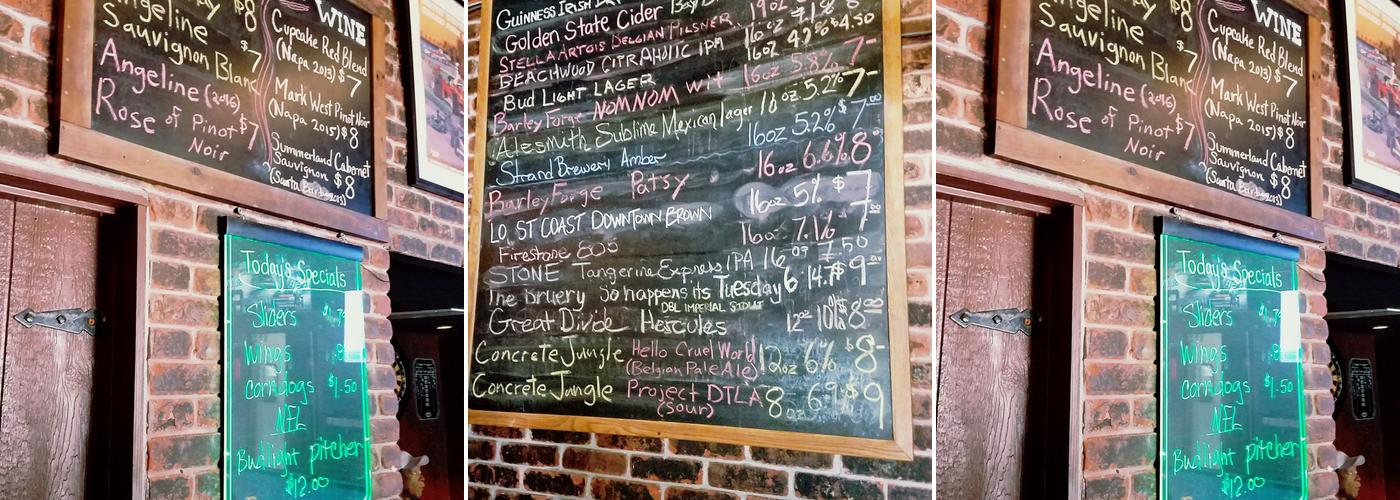 $8
Angeline
Sauvignon Blanc
$7
Angeline (2016)
Rose of Pinot $7
Noir
WINE
Cupcake Red Blend
(Napa 2013) $7
Mark West Pinot Noir
(Napa 2015) $8
Summerland Cabernet
Sauvignon $8
(Santa
Today's Specials
Sliders
Wings
corndogs $1.50
NFL
Budlight pitcher
$12.00
GUINNESS IRISH
Golden State Cider
STELLA ARTOIS BELGIAN PILSNER 19oz
BEACHWOOD CITRAHOLIC IPA 16oz
Bud LIGHT LAGER 16oz 4.2% $4.50
Barley Forge NOM NOM Wit 16oz 5.8% 7-
Alesmith Sublime Mexican lager 16oz 5.2% 7-
Strand Brewery Amber 16oz 5.2% $7.00
Barley Forge Patsy 16oz 6.6% 8
LOST COAST DOWNTOWN BROWN 16oz 5% $7
Firestone 805
STONE Tangerine Express IPA 16oz 7.50
The Bruery So happens its Tuesday 6 14.7 $9-
DBL IMPERIAL STOUT
Great Divide Hercules 12oz 10% $8.00
Concrete Jungle Hello Cruel World 12oz 6% $8-
(Belgian Pale Ale)
Concrete Jungle Project DTLA 8oz 6.9% $9
(Sour)
$8
Angeline
Sauvignon Blanc
$7
Angeline (2016)
Rose of Pinot $7
Noir
WINE
Cupcake Red Blend
(Napa 2013) $7
Mark West Pinot Noir
(Napa 2015) $8
Summerland Cabernet
Sauvignon $8
(Santa
Today's Specials
Sliders
Wings
corndogs $1.50
NFL
Budlight pitcher
$12.00